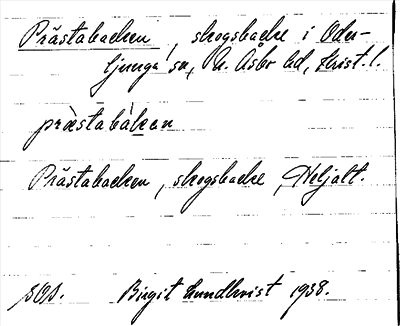 Prästabacken, skogsbacke i Oder-
ljunga sn, N. Åsbo hd, Krist. l.
præ̀stabàkan
Prästabacken, skogsbacke, Heljalt.
SOS. Birgit Lundkvist 1938.